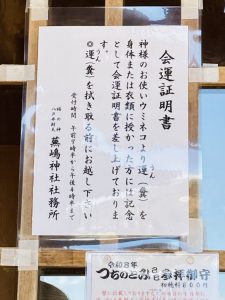 会運証明書
神様のお使いウミネコより運(糞)を
身体または衣類に授かった方には記念
として会運証明書を差し上げておりま
す。
◎運(糞)を拭き取る前にお越し下さい
受付時間 午前9時半から午後4時半まで
蕪嶋神社社務所
令和8年
つちのとみ
初穂料800円